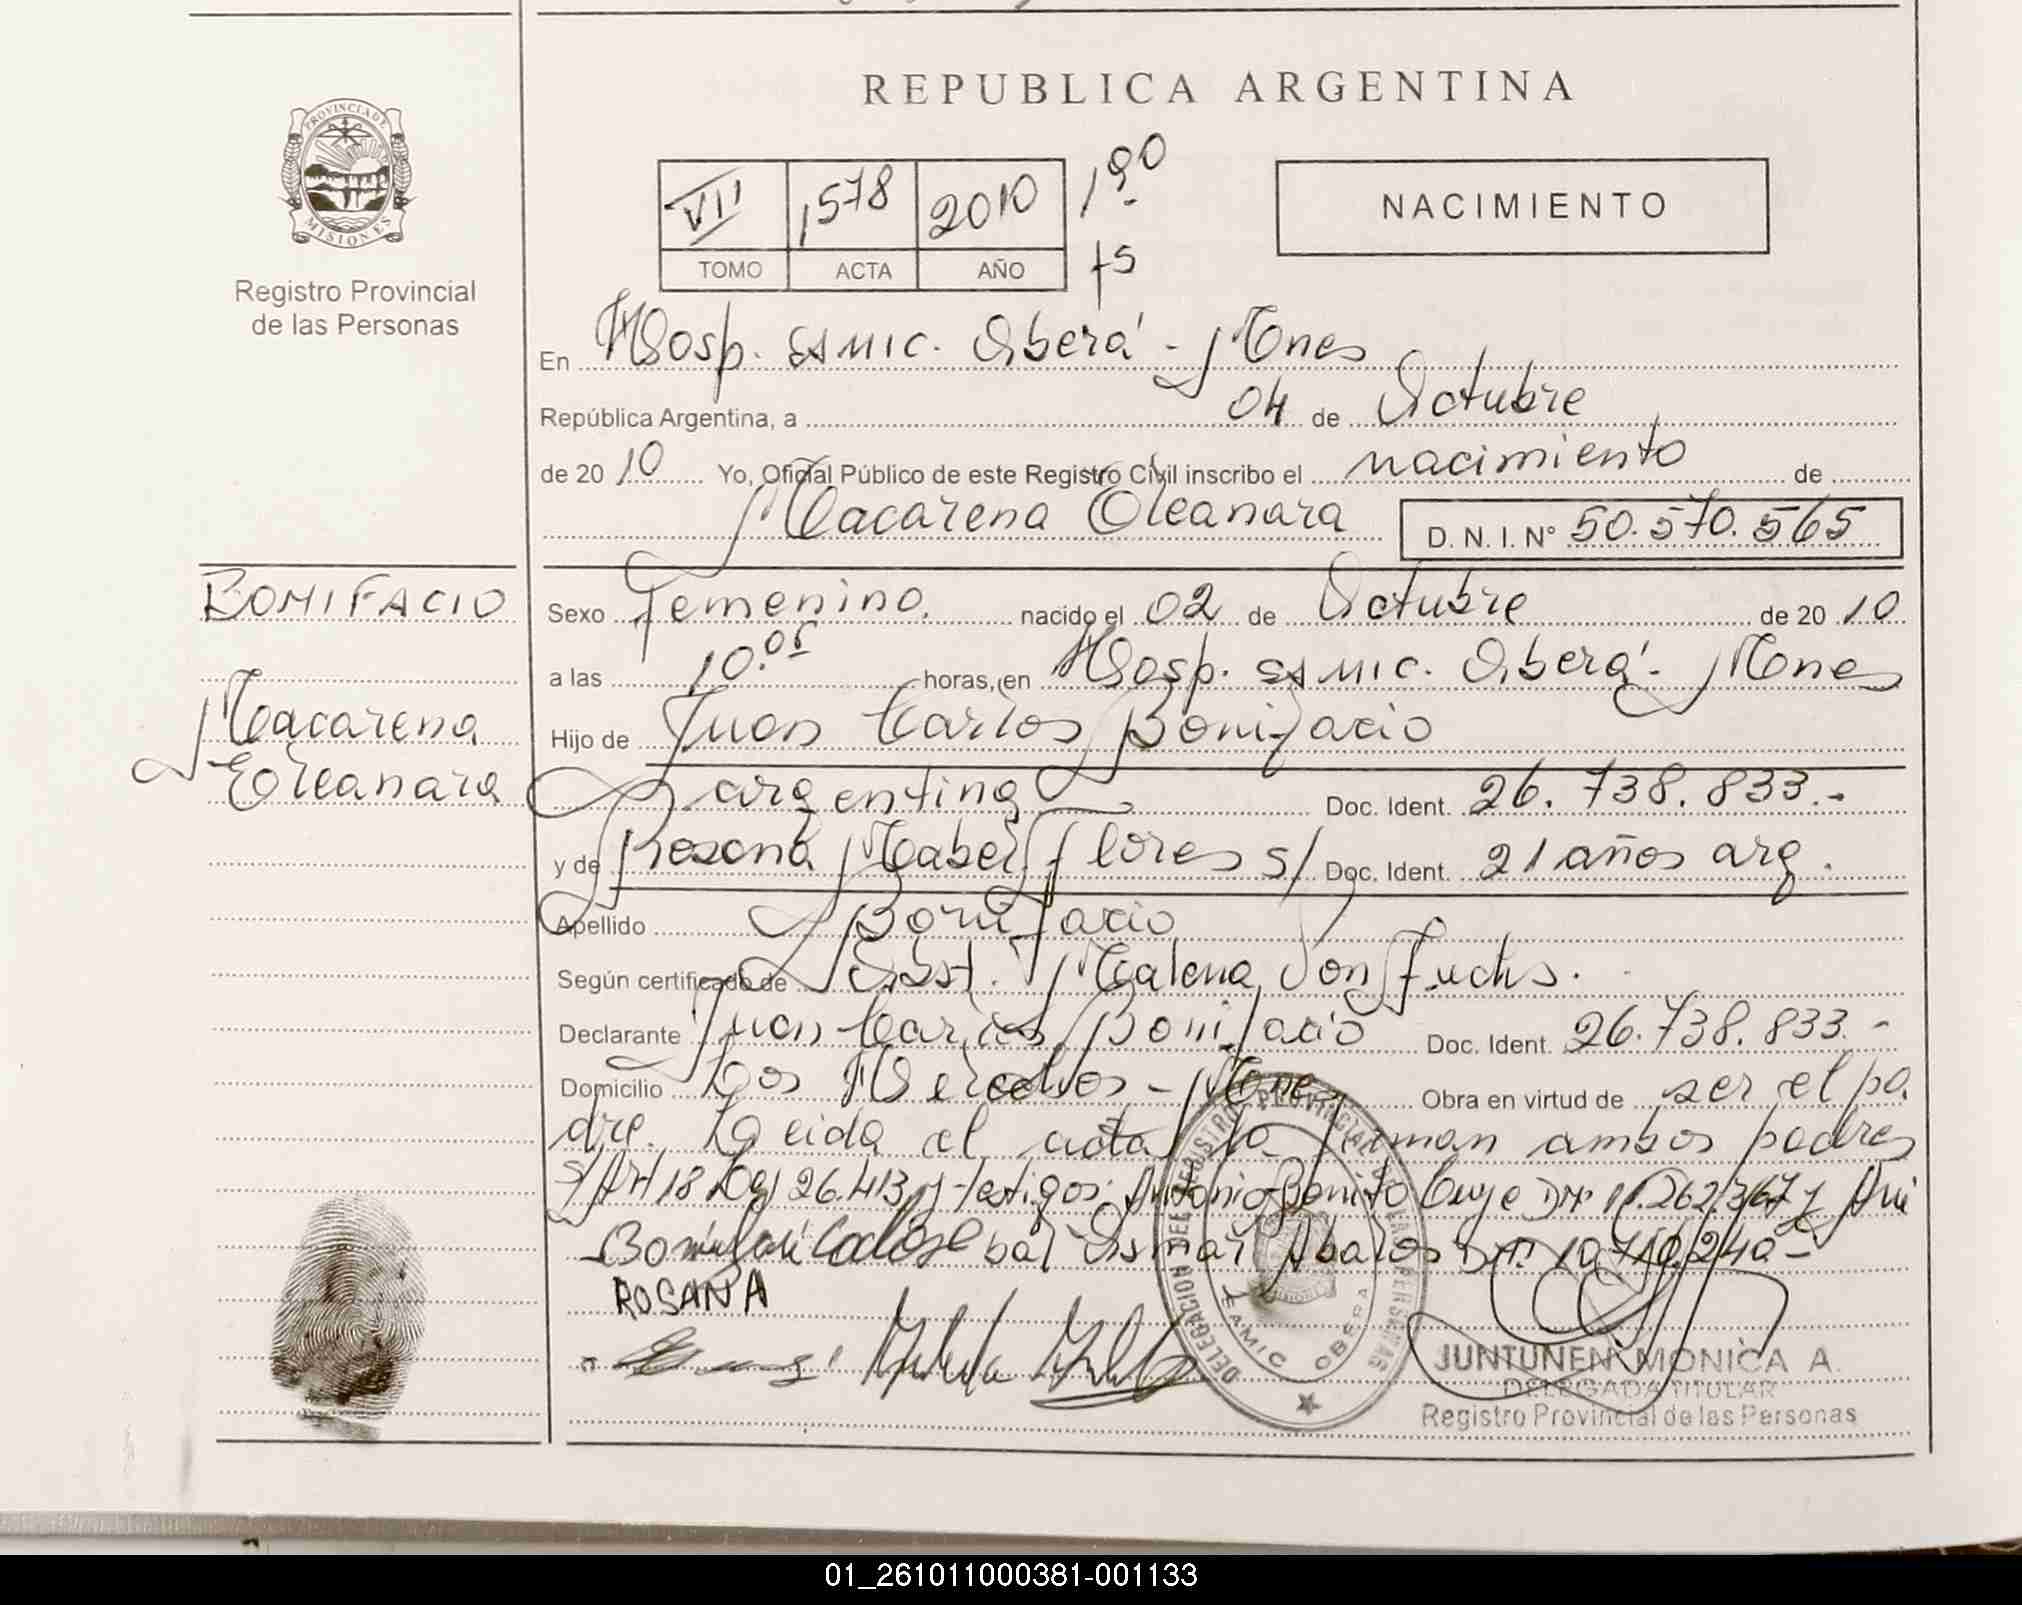 PROVINCIA DE
MISIONES
Registro Provincial
de las Personas
BONIFACIO
Macarena
Eleanara
REPUBLICA ARGENTINA
VII 1578 2010 190
TOMO ACTA AÑO fs
NACIMIENTO
En Hosp. SAMIC. Oberá - Mnes
República Argentina, a 04 de Octubre
de 2010 Yo, Oficial Público de este Registro Civil inscribo el nacimiento de
Macarena Eleanara D. N. I. Nº 50.570.565
Sexo Femenino. nacido el 02 de Octubre de 2010
a las 10.05 horas, en Hosp. SAMIC. Oberá - Mnes
Hijo de Juan Carlos Bonifacio
argentino Doc. Ident. 26.738.833.-
y de Rosana Mabel Flores s/ Doc. Ident. 21 años arg.
Apellido Bonifacio
Según certificado de Obst. Malena Von Fuchs.
Declarante Juan Carlos Bonifacio Doc. Ident. 26.738.833.-
Domicilio Los Helechos - Mnes Obra en virtud de ser el pa
dre. Leida el acta la firman ambos padres
s/Art 18 Ley 26.413 y testigos: Antonio Benito
bal Osmar Abalos
ROSANA
DELEGACION DEL REGISTRO PROVINCIAL DE LAS PERSONAS
SAMIC OBERA
JUNTUNEN MONICA A.
DELEGADA TITULAR
Registro Provincial de las Personas
01_261011000381-001133